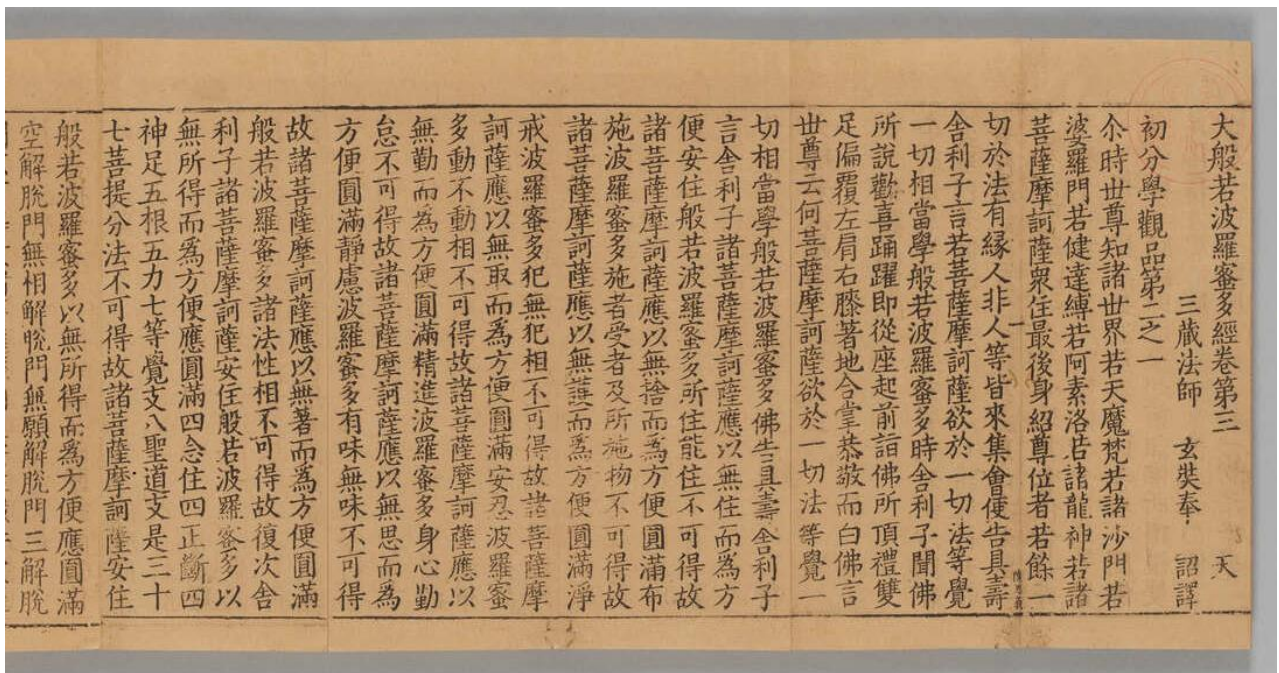 大般若波羅蜜多經卷第三 天
三藏法師 玄奘奉 詔譯
初分學觀品第二之一
尒時世尊知諸世界若天魔梵若諸沙門若
婆羅門若健達縛若阿素洛若諸龍神若諸
菩薩摩訶薩衆住最後身紹尊位者若餘一
切於法有緣人非人等皆來集會便告具壽
舍利子言若菩薩摩訶薩欲於一切法等覺
一切相當學般若波羅蜜多時舍利子聞佛
所說歡喜踊躍即從座起前詣佛所頂禮雙
足偏覆左肩右膝著地合掌恭敬而白佛言
世尊云何菩薩摩訶薩欲於一切法等覺一
切相當學般若波羅蜜多佛告具壽舍利子
言舍利子諸菩薩摩訶薩應以無住而為方
便安住般若波羅蜜多所住能住不可得故
諸菩薩摩訶薩應以無捨而為方便圓滿布
施波羅蜜多施者受者及所施物不可得故
諸菩薩摩訶薩應以無護而為方便圓滿淨
戒波羅蜜多犯無犯相不可得故諸菩薩摩
訶薩應以無取而為方便圓滿安忍波羅蜜
多動不動相不可得故諸菩薩摩訶薩應以
無勤而為方便圓滿精進波羅蜜多身心勤
怠不可得故諸菩薩摩訶薩應以無思而為
方便圓滿靜慮波羅蜜多有味無味不可得
故諸菩薩摩訶薩應以無著而為方便圓滿
般若波羅蜜多諸法性相不可得故復次舍
利子諸菩薩摩訶薩安住般若波羅蜜多以
無所得而為方便應圓滿四念住四正斷四
神足五根五力七等覺支八聖道支是三十
七菩提分法不可得故諸菩薩摩訶薩安住
般若波羅蜜多以無所得而為方便應圓滿
空解脫門無相解脫門無願解脫門三解脫